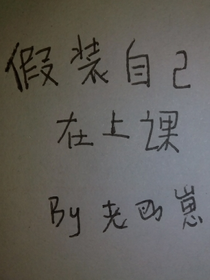 假装自己
在上课
By 老西崽